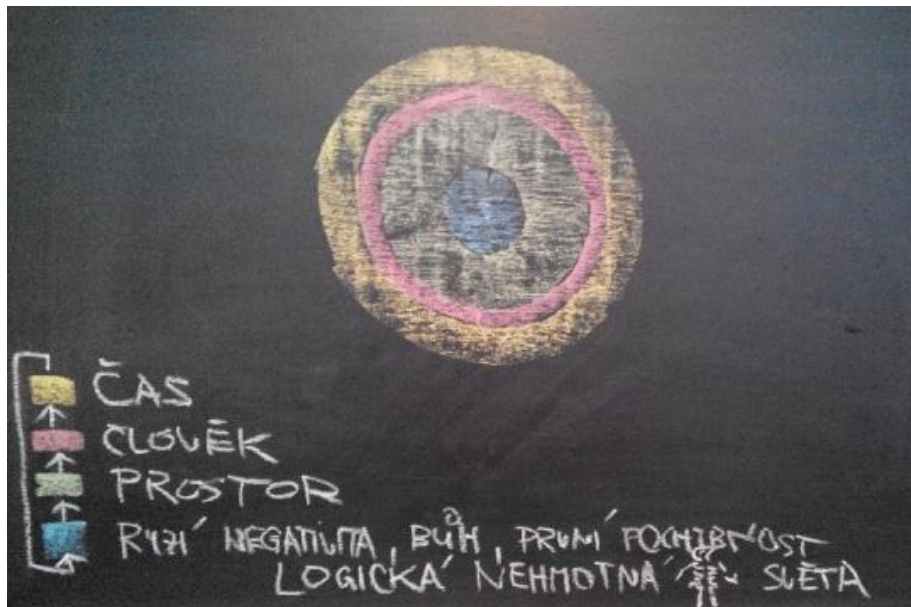 ČAS
ČLOVĚK
PROSTOR
RYZÍ NEGATIVITA, BŮH, PRVNÍ POCHIBNOST
LOGICKÁ NEHMOTNÁ SVĚTA